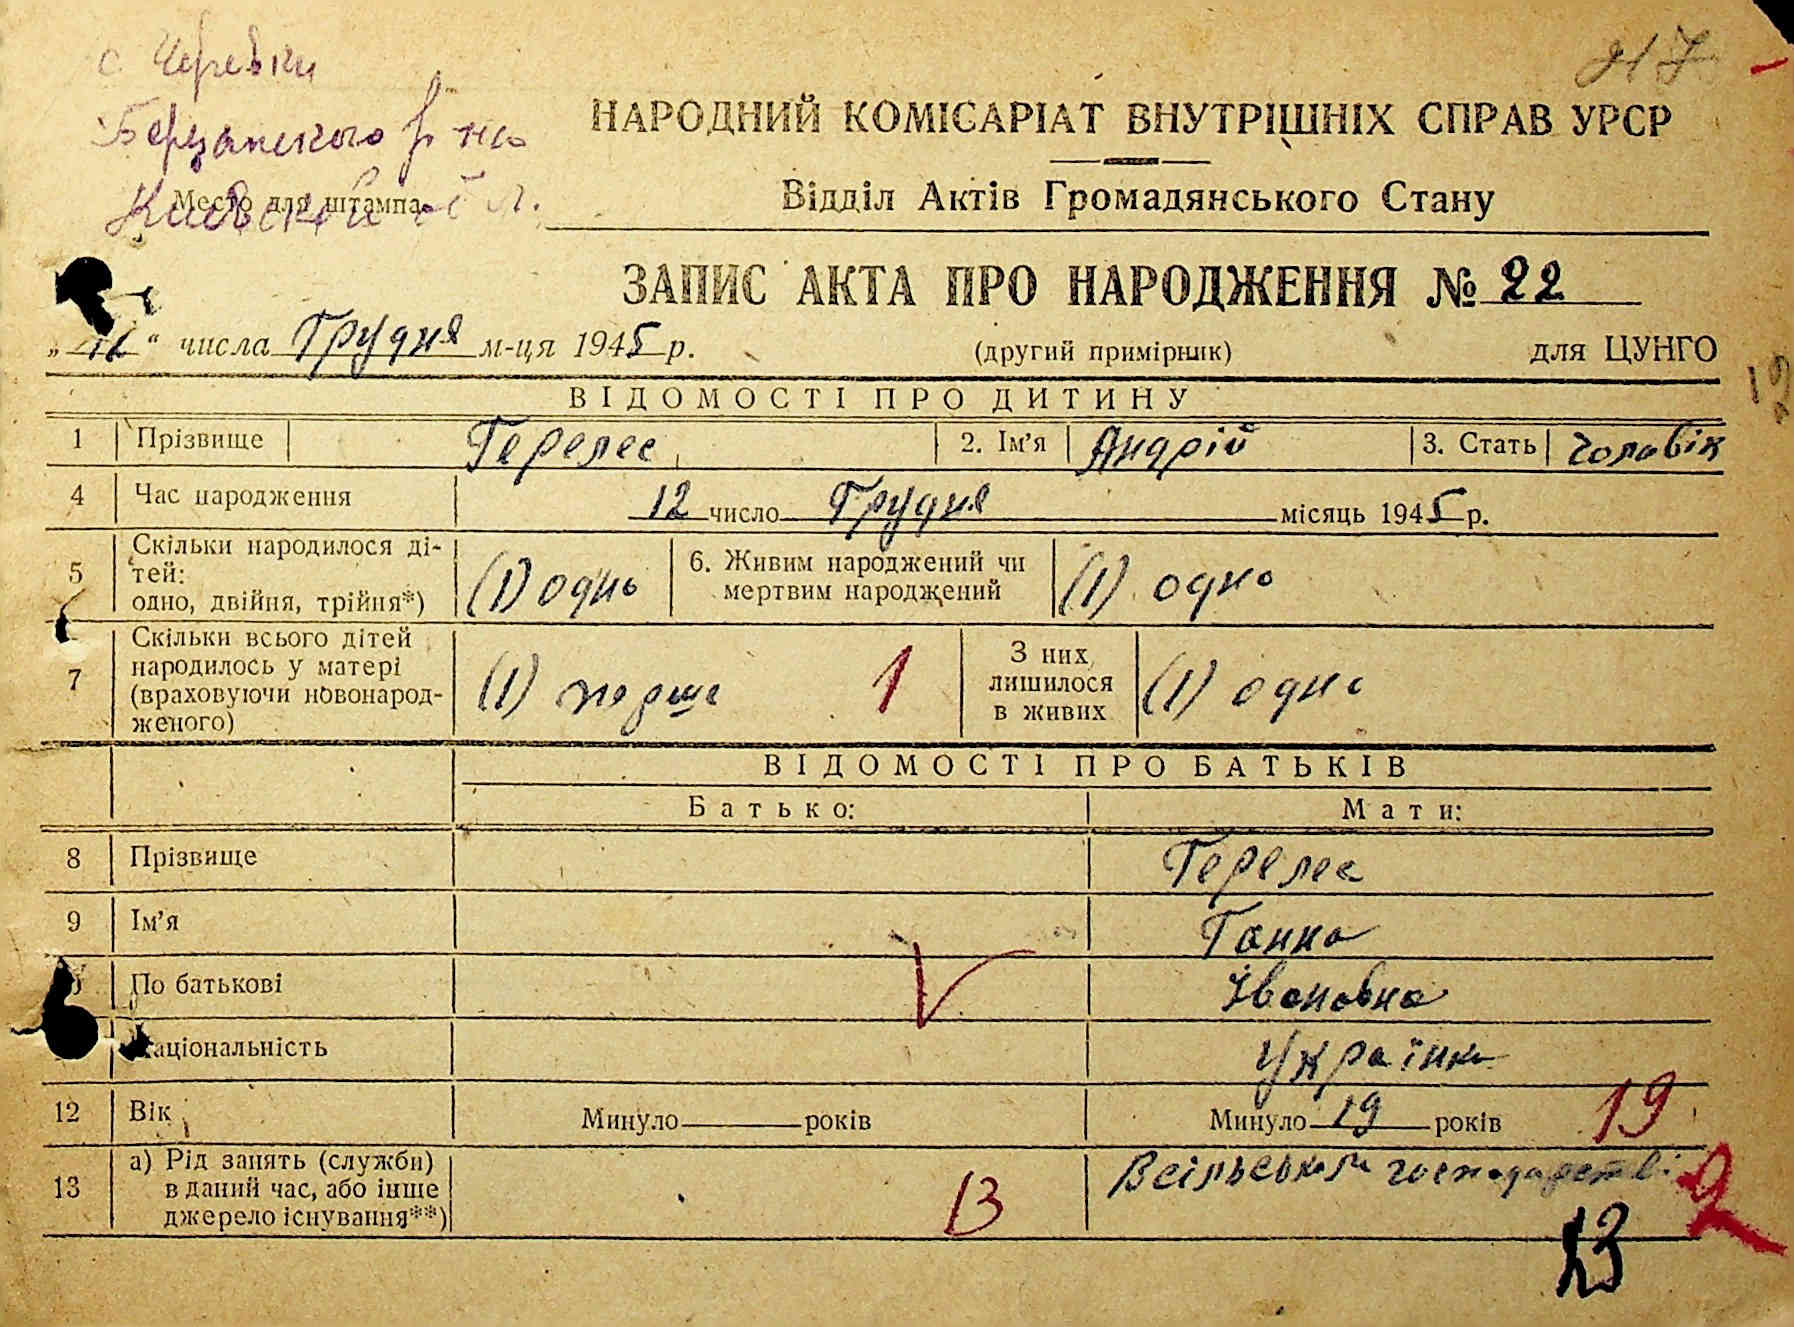 с. Черевки
Березанского р-на
Киевской обл.
Место для штампа
НАРОДНИЙ КОМІСАРІАТ ВНУТРІШНІХ СПРАВ УРСР
Відділ Актів Громадянського Стану
ЗАПИС АКТА ПРО НАРОДЖЕННЯ № 22
„12“ числа Грудня м-ця 1945 р. (другий примірник) для ЦУНГО
ВІДОМОСТІ ПРО ДИТИНУ
1 Прізвище Герелес 2. Ім’я Андрій 3. Стать чоловік
4 Час народження 12 число Грудня місяць 1945 р.
5 Скільки народилося дітей: одно, двійня, трійня*) (1) одно 6. Живим народжений чи мертвим народжений (1) одно
7 Скільки всього дітей народилось у матері (враховуючи новонародженого) (1) перше 1 З них лишилося в живих (1) одно
ВІДОМОСТІ ПРО БАТЬКІВ
Батько: Мати:
8 Прізвище Герелес
9 Ім’я Ганна
По батькові Івановна
Національність Українка
12 Вік Минуло років Минуло 19 років 19
13 а) Рід занять (служби) в даний час, або інше джерело існування**) 13 В сільськім господарстві 2
13